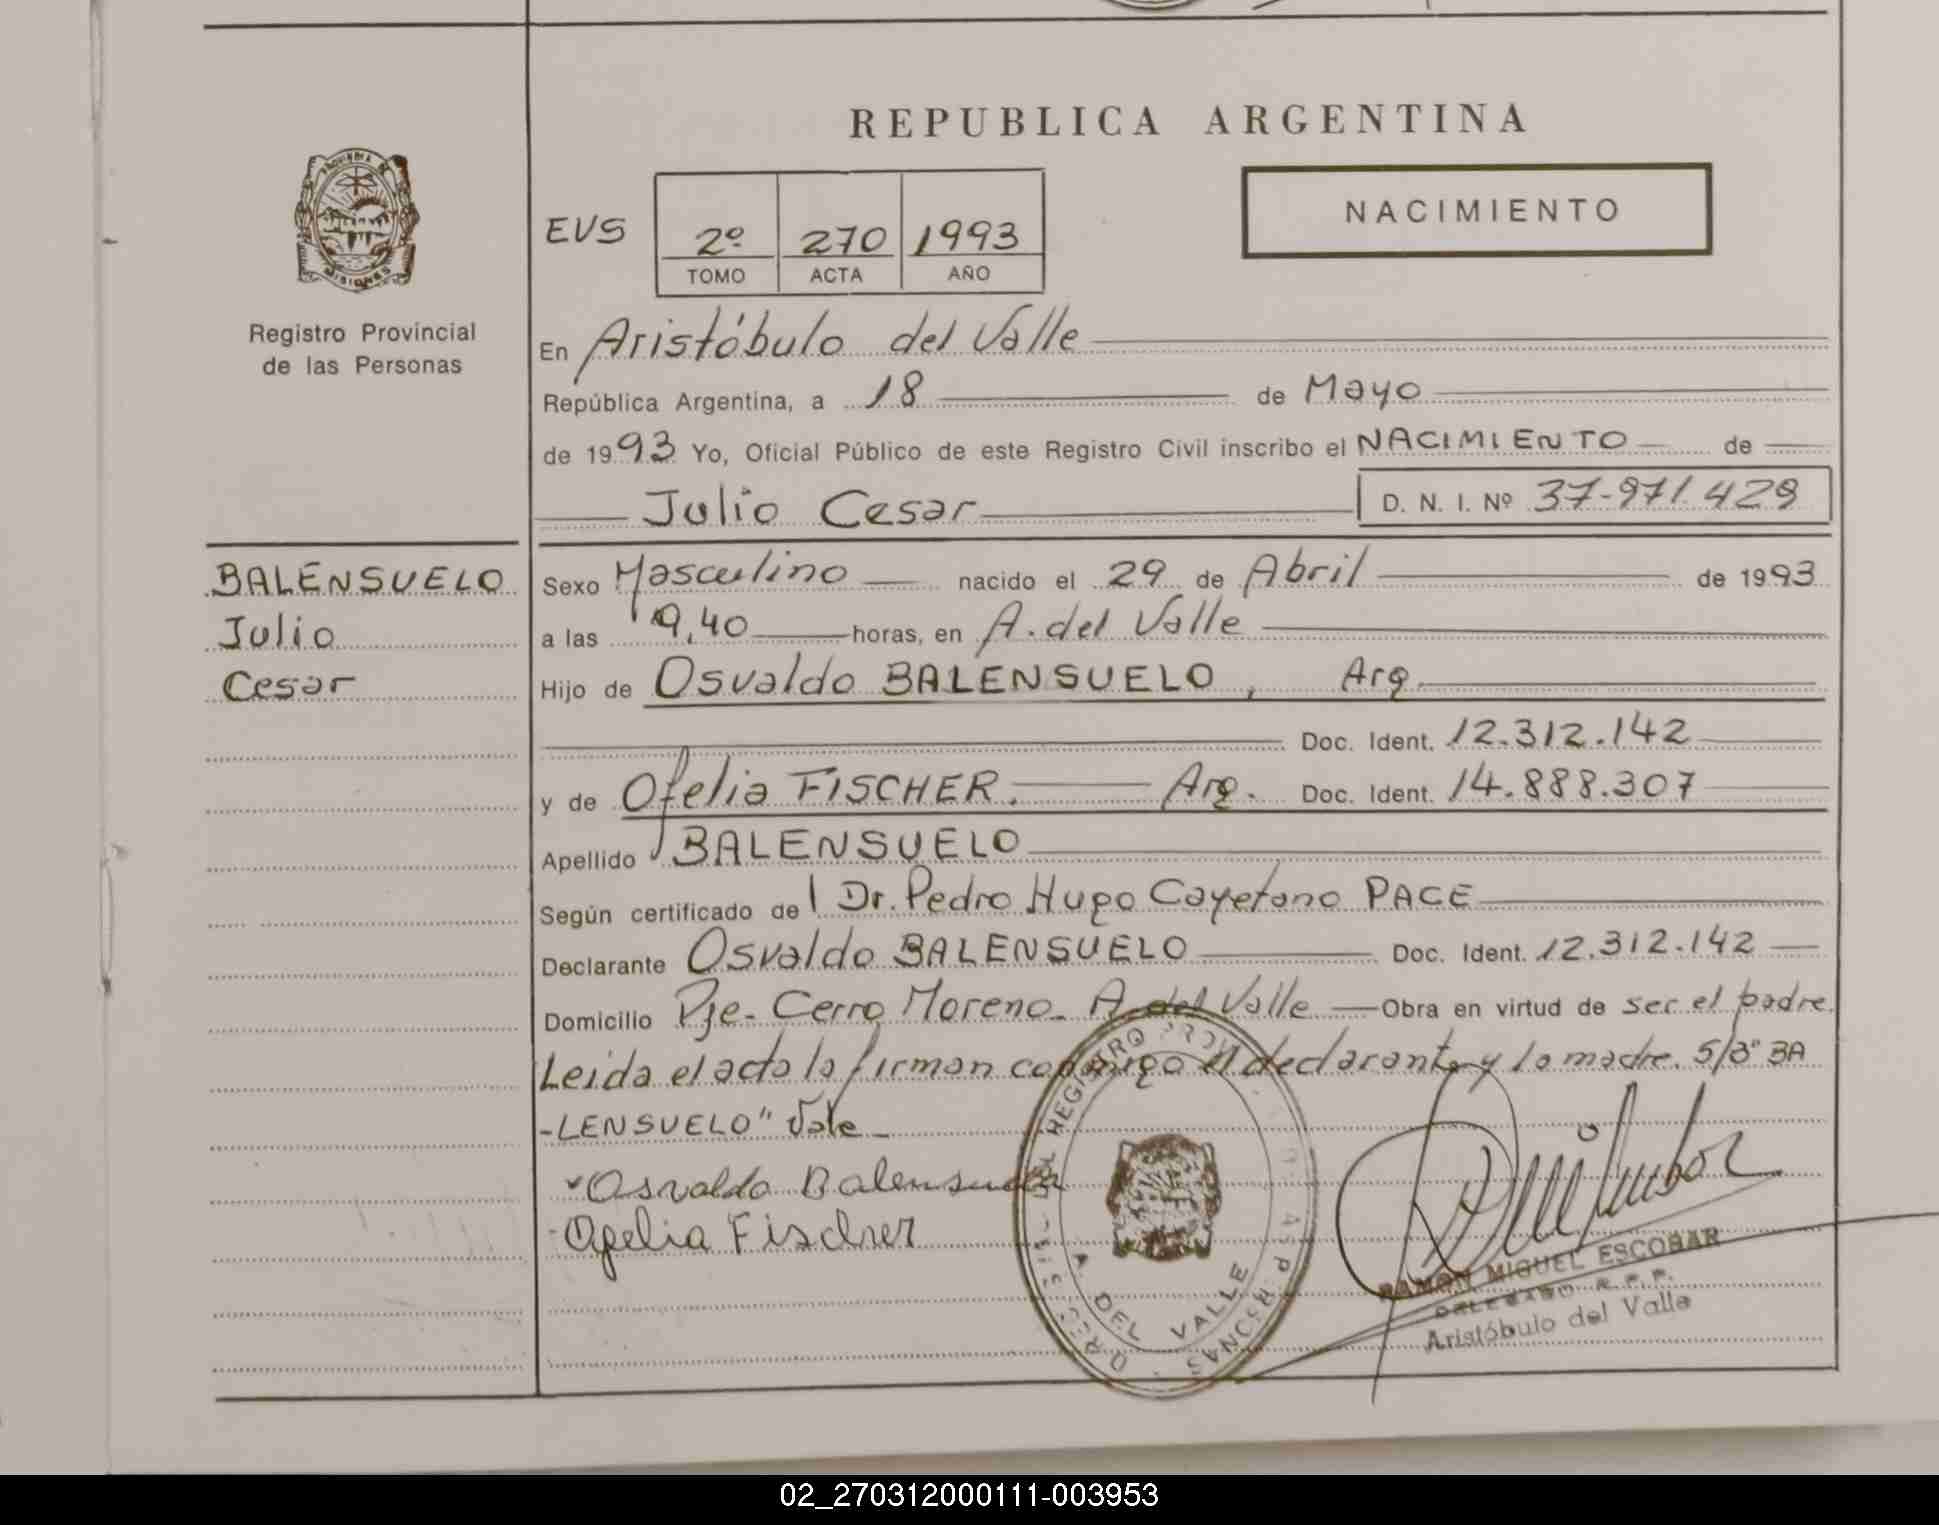 REPUBLICA ARGENTINA
NACIMIENTO
EVS
2º 270 1993
TOMO ACTA AÑO
PROVINCIA DE
MISIONES
Registro Provincial
de las Personas
En Aristóbulo del Valle
República Argentina, a 18 de Mayo
de 1993 Yo, Oficial Público de este Registro Civil inscribo el NACIMIENTO de
Julio Cesar D. N. I. Nº 37-971.429
BALENSUELO
Julio
Cesar
Sexo Masculino nacido el 29 de Abril de 1993
a las 9,40 horas, en A. del Valle
Hijo de Osvaldo BALENSUELO, Arg.
Doc. Ident. 12.312.142
y de Ofelia FISCHER. Arg. Doc. Ident. 14.888.307
Apellido BALENSUELO
Según certificado de l Dr. Pedro Hugo Cayetano PACE
Declarante Osvaldo BALENSUELO Doc. Ident. 12.312.142
Domicilio Pje. Cerro Moreno. A. del Valle Obra en virtud de ser el padre.
Leida el acta la firman conmigo el declarante y la madre. S/B" BA
-LENSUELO" Vale
Osvaldo Balensuelo
Ofelia Fischer
A. DEL VALLE
RAMON MIGUEL ESCOBAR
DELEGADO R. P. P.
Aristóbulo del Valle
02_270312000111-003953